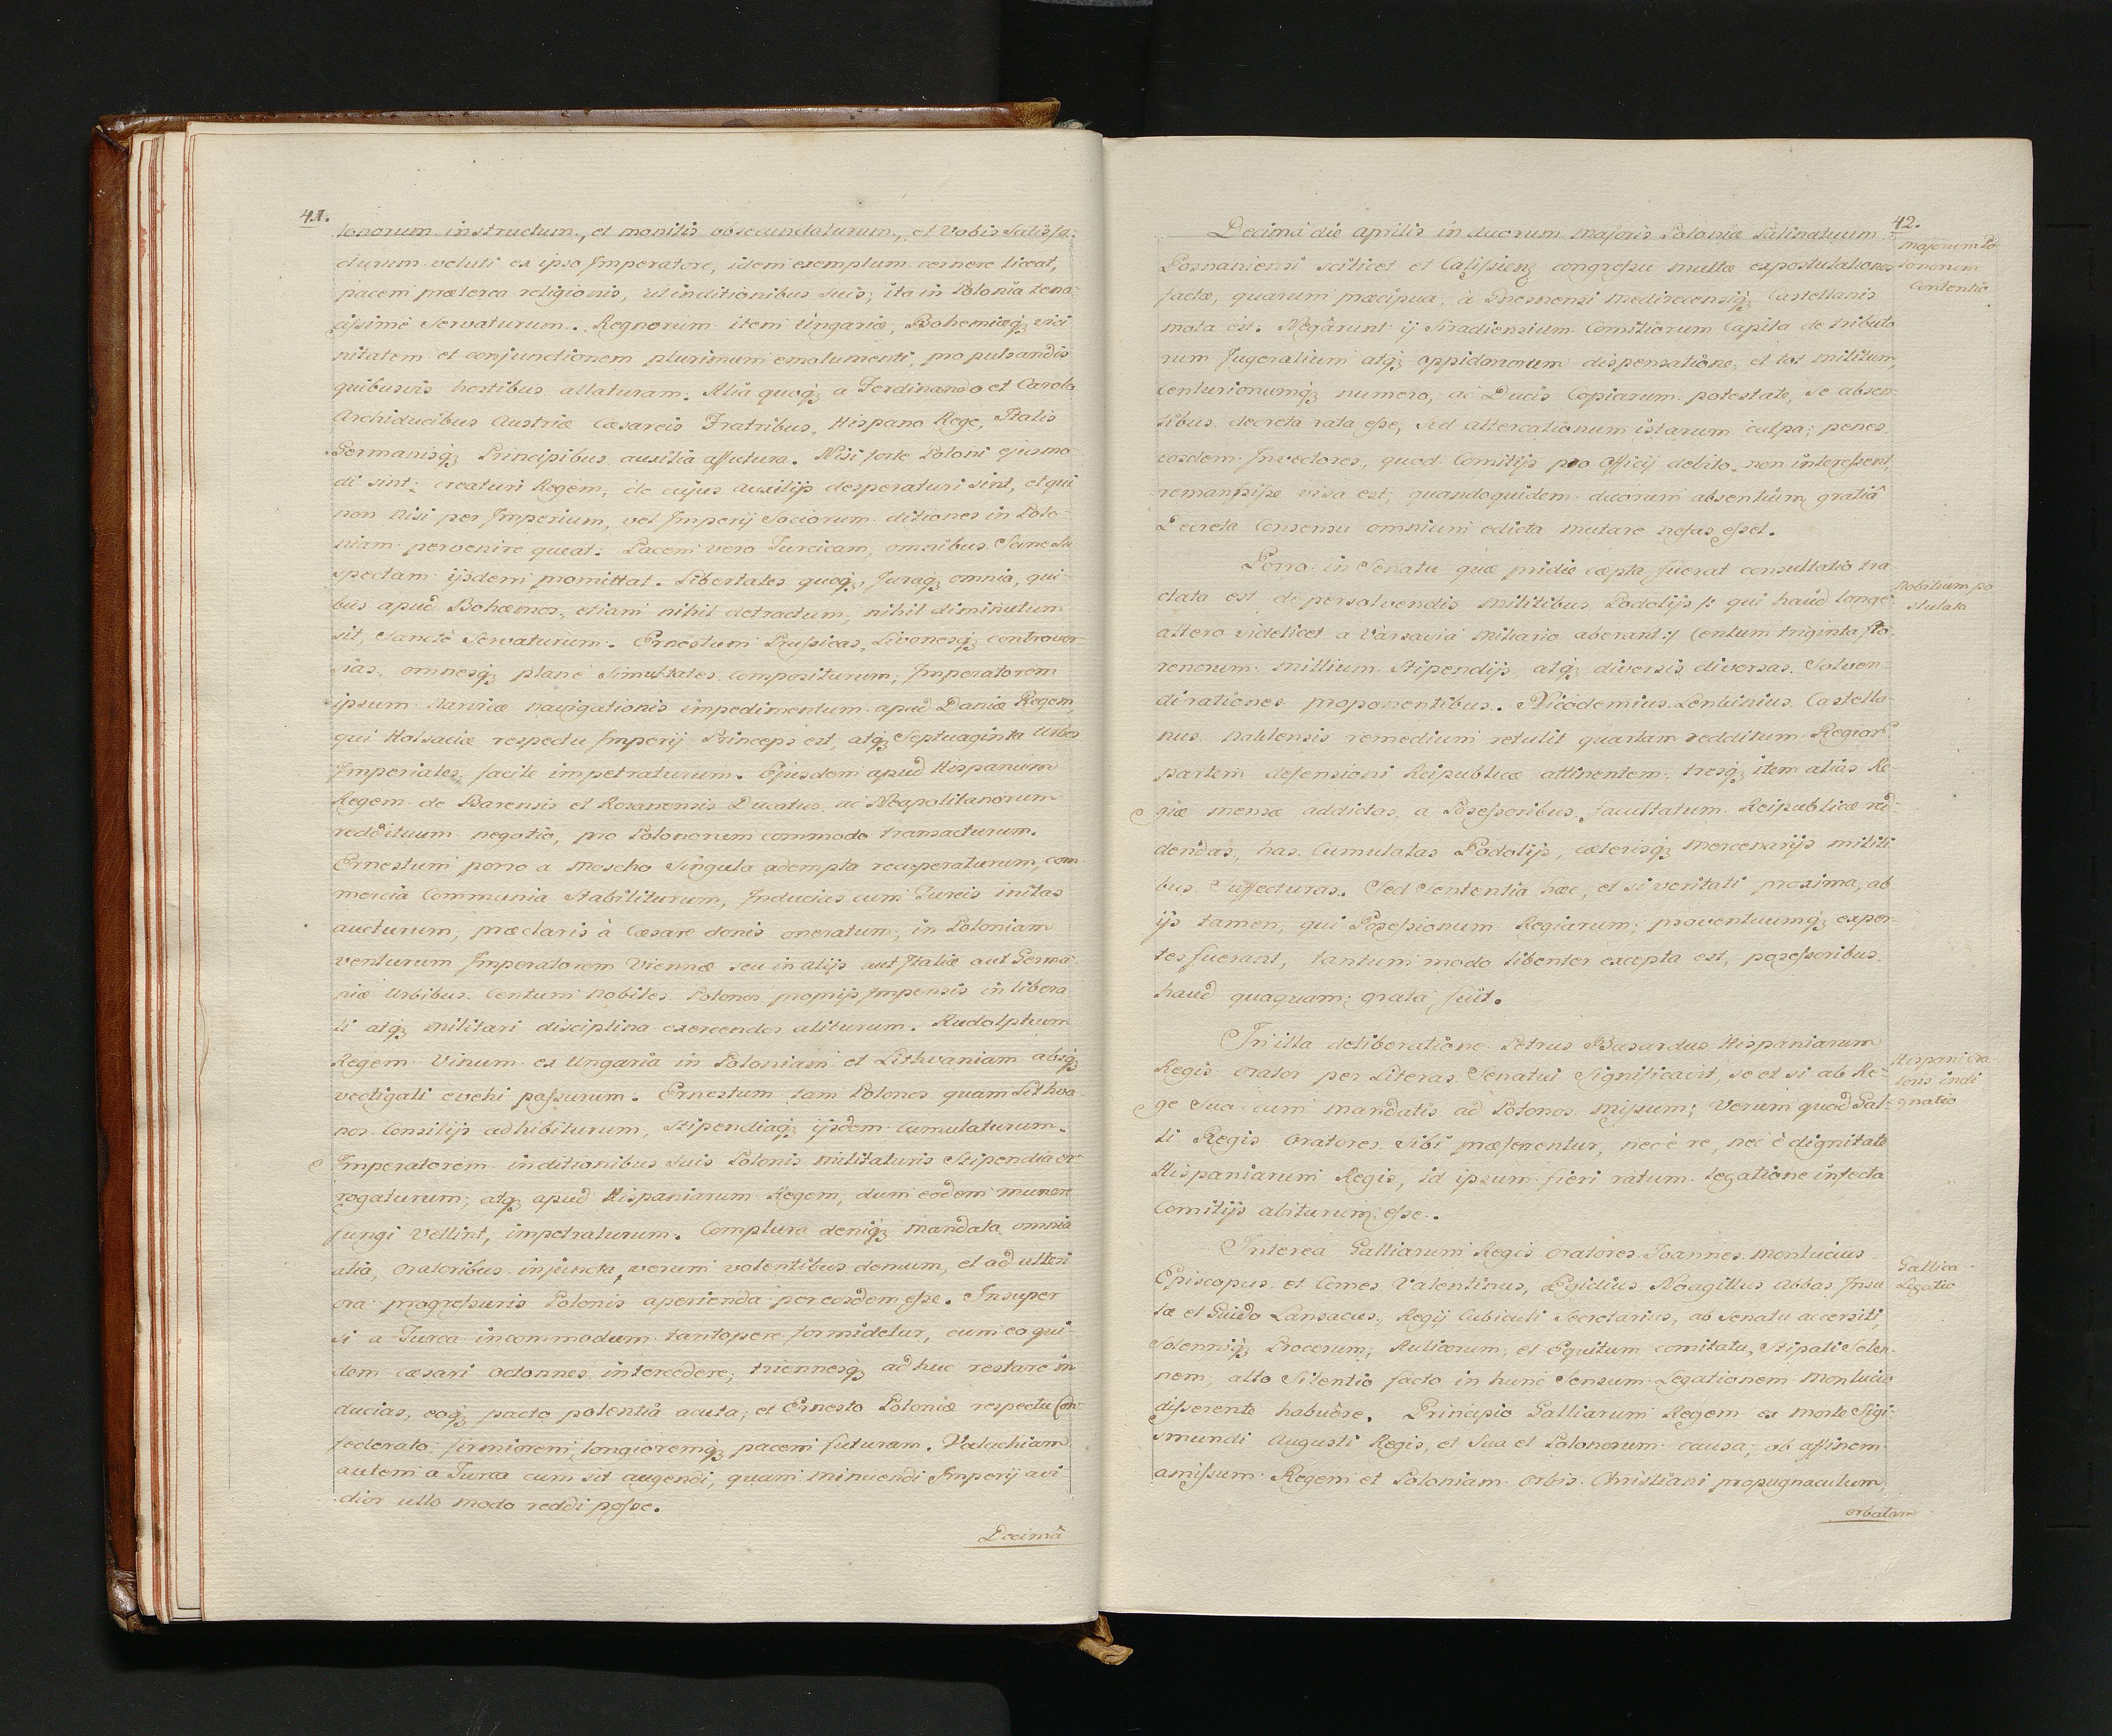 41.
lonorum instructum, et monitis obsecundaturum, et Vobis Satisfa-
cturum veluti ex ipso Imperatore, idem exemplum cernere liceat,
pacem præterea religionis, ut inditionibus suis, ita in Polonia tena-
cissimè Servaturum. Regnorum item Ungariæ, Bohemiæq; vici
nitatem et conjunctionem plurimum emolumenti, pro pulsandis
quibusvis hostibus allaturam. Alia quoq; a Ferdinando et Carolo
Archiducibus Austriæ Cæsareis Fratribus, Hispano Rege, Italis
Germanisq; Principibus auxilia affutura. Nisi forte Poloni ejusmo
di sint; creaturi Regem, de cujus auxilijs desperaturi sint, et qui
non nisi per Imperium, vel Imperij Sociorum ditiones in Polo-
niam pervenire queat. Pacem vero Turcicam, omnibus Sane Su
spectam ijsdem promittat. Libertates quoq; Juraq; omnia, qui-
bus apud Bohæmos, etiam nihil detractum, nihil diminutum
sit, Sanctè Servaturum. Ernestum Prussicas, Livonesq; controver-
sias, omnesq; planè Simultates compositurum; Imperatorem
ipsum Narvicæ navigationis impedimentum apud Daniæ Regem,
qui Holsaciæ respectu Imperij Princeps est, atq; Septuaginta Urbes
Imperiales facile impetraturum. Ejusdem apud Hispanum
Regem de Barensis et Rosanensis Ducatus, ac Neapolitanorum
reddituum negotio, pro Polonorum commodo transacturum.
Ernestum porro a Moscho Singula adempta recuperaturum, com
mercia Communia Stabiliturum, Inducias cum Turcis initas
aucturum, præclaris à Cæsare donis oneratum, in Poloniam
venturum Imperatorem Viennæ seu in alijs aut Italiæ aut Germa-
niæ Urbibus Centum Nobiles Polonos proprijs Impensis in libera
li atq; Militari disciplina exercendos aliturum. Rudolphum
Regem Vinum ex Ungaria in Poloniam et Lithvaniam absq;
vectigali evehi passurum. Ernestum tam Polonos quam Lithva-
nos Consilijs adhibiturum, Stipendiaq; ijsdem Cumulaturum.
Imperatorem inditionibus Suis Polonis militaturis Stipendia er-
rogaturum; atq; apud Hispaniarum Regem, dum eodem munere
fungi Vellint, impetraturum. Complura deniq; mandata omnia
alia, Oratoribus injuncta, verum volentibus demum, et ad ulteri
ora progressuris Polonis aperienda per eosdem esse. Insuper
si a Turca incommodum tantopere formidetur, cum eo qui-
dem Cæsari Octonnes intercedere, triennesq; adhuc restare in
ducias, eoq; pacto potentiâ aucta; et Ernesto Poloniæ respectu Con-
federato, firmiorem longioremq; pacem futuram. Valachiam
autem a Turca cum sit augendi, quam minuendi Imperij avi-
dior ullo modo reddi posse.
Decimâ
42.
Decimâ die Aprilis in duorum Majoris Poloniæ Palinatuum
Posnaniensi scilicet et Calissien; congressu multæ expostulationes
factæ, quarum præcipua, à Gnesnensi Medirecensiq; Castellanis
mota est. Negârunt ij Siradiensium Comitiorum Capita de tributo
rum Jugeralium atq; oppidanorum dispensatione, et tot militum,
centurionumq; numero, ac Ducis Copiarum potestate, se absen-
tibus decreta rata esse, Sed altercationum istarum culpa, penes
eosdem Invectores, quod Comitijs pro Officij debito non interessent,
remansisse visa est; quandoquidem duorum absentium gratiâ
Decreta Consensu omnium edicta mutare nefas esset.
Majorum Po
lonorum
Contentio
Porro in Senatu quæ pridie cœpta fuerat consultatio tra
ctata est de persolvendis Militibus Podolijs /: qui haud longè
altero videlicet a Varsavia Miliario aberant :/ Centum triginta flo-
renorum Millium Stipendijs, atq; diversis diversas Solven-
di rationes proponentibus. Nicodemius Lenkinius Castella-
nus Naklensis remedium retulit quartam redditum Regior
partem defensioni Reipublicæ attinentem, tresq; item alias Re
giæ mensæ addictas, a Possessoribus facultatum Reipublicæ red-
dendas, has Cumulatas Podolijs, cæterisq; mercenarijs militi
bus Suffecturas. Sed Sententia hæc, et si veritati proxima, ab
ijs tamen, qui Possessionum Regiarum, proventuumq; exper-
tes fuerant, tantum modo libenter excepta est, possessoribus
haud quaquam grata fuit.
Nobilium po
stulata
In illa deliberatione Petrus Basardus Hispaniarum
Regis Orator per Literas Senatui Significavit, se et si ab Re-
ge Suo cum mandatis ad Polonos missum; Verum quod Gal-
li Regis Oratores Sibi præferentur, nec è re, nec è dignitate
Hispaniarum Regis, id ipsum fieri ratum legatione infecta
Comitijs abiturum esse.
Hispani Ora
toris indi
gnatio
Interea Galliarum Regis Oratores Joannes Monlucius
Episcopus et Comes Valentinus, Ægidius Noagillus Abbas Insu
læ et Guido Lansacus, Regij Cubiculi Secretarius, ab Senatu accersiti,
Solenniq; Procerum, Aulicorum, et Equitum comitatu, Stipati Solen-
nem, alto Silentio facto in hunc Sensum Legationem Monlucio
disserente habuêre. Principio Galliarum Regem ex morte Sigi-
smundi Augusti Regis, et Sua et Polonorum causa, ob affinem
amissum Regem et Poloniam Orbis Christiani propugnaculum,
Gallica
Legatio
orbatam